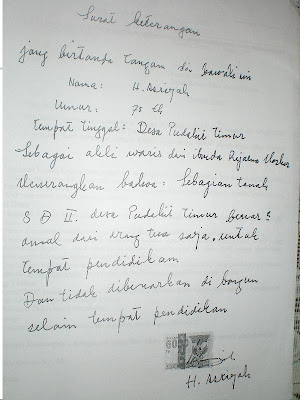 Surat keterangan
jang bertanda tangan di bawah ini
Nama : H. Asriyah
Umur : 75 th
tempat tinggal : Desa Pudakit Timur
Sebagai ahli waris dari ibunda
Menerangkan bahwa : Sebagian tanah
S D II. desa Pudakit Timur benar2
amal dari orang tua saja, untuk
tempat pendidikan
Dan tidak dibenarkan di bangun
selain tempat pendidikan
H. Asriyah